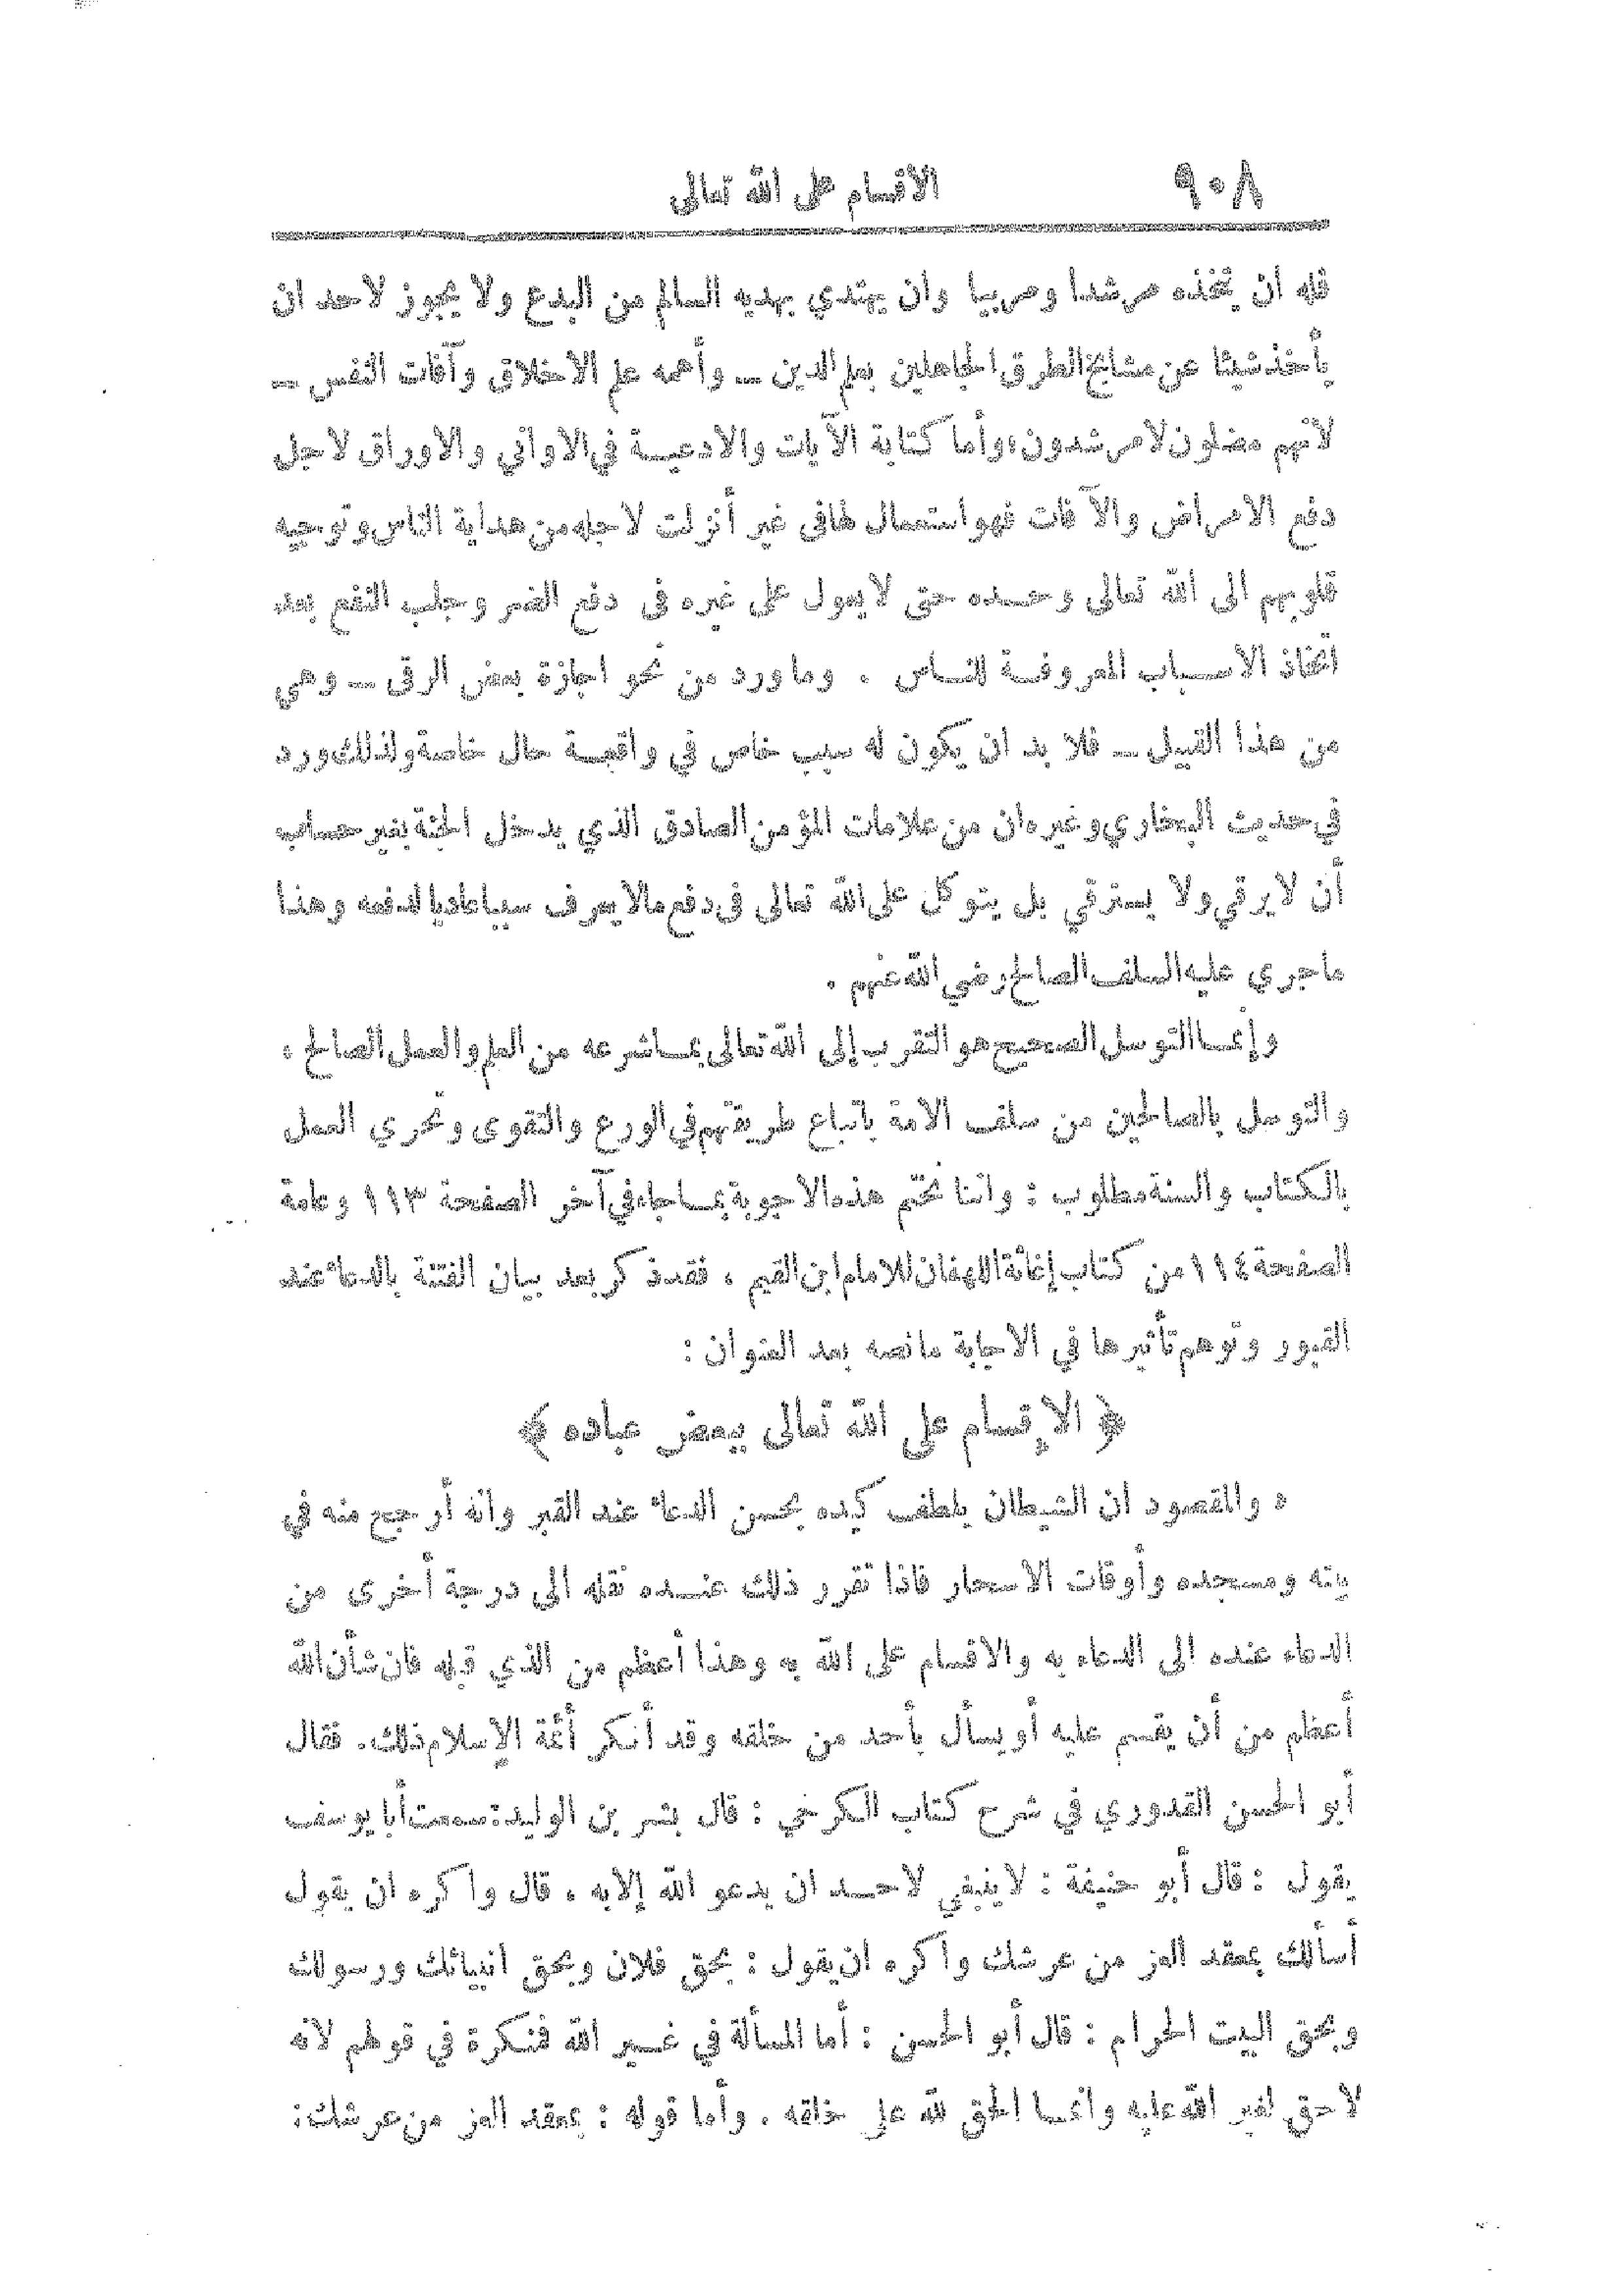 ٩٠٨ الاقسام على الله تعالى
فله ان يتخذه مرشدا ومربيا وان يهتدي بهديه السالم من البدع ولا يجوز لاحد ان
يأخذ شيئا عن مشايخ الطرق الجاهلين بعلم الدين ــ وأهمه علم الاخلاق وآفات النفس ــ
لانهم مضلون لا مرشدون، وأما كتابة الآيات والادعيـة في الاواني والاوراق لاجل
دفع الامراض والآفات فهو استعمال لها في غير أنزلت لاجله من هداية الناس وتوجيه
قلوبهم الى الله تعالى وحـده حتى لا يعول على غيره في دفع الضر وجلب النفع بعد
اتخاذ الاسـباب المعروفـة للنـاس . وما ورد من نحو اجازة بعض الرقى ــ وهي
من هذا القبيل ــ فلا بد ان يكون له سبب خاص في واقعـة حال خاصة ولذلك ورد
في حديث البخاري وغيره ان من علامات المؤمن الصادق الذي يدخل الجنة بغير حساب
أن لا يرقي ولا يسترقي بل يتوكل على الله تعالى في دفع ما لا يعرف سببا عاديا لدفعه وهذا
ما جري عليه السلف الصالح رضي الله عنهم .
وإنمـا التوسل الصحيح هو التقرب إلى الله تعالى بمـا شرعه من العلم والعمل الصالح ،
والتوسل بالصالحين من سلف الامة باتباع طريقتهم في الورع والتقوى وتحري العمل
بالكتاب والسنة مطلوب : واننا نختم هذه الاجوبة بمـا جاء في آخر الصفحة ١١٣ وعامة
الصفحة ١١٤ من كتاب إغاثة اللهفان للامام ابن القيم ، فقد ذكر بعد بيان الفتنة بالدعاء عند
القبور وتوهم تأثيرها في الاجابة ما نصه بعد العنوان :
﴿ الإقسام على الله تعالى ببعض عباده ﴾
« والمقصود ان الشيطان بلطف كيده يحسن الدعاء عند القبر وانه أرجح منه في
بيته ومسجده وأوقات الاسحار فاذا تقرر ذلك عنـده نقله الى درجة أخرى من
الدعاء عنده الى الدعاء به والاقسام على الله به وهذا أعظم من الذي قبله فان شأن الله
أعظم من أن يقسم عليه أو يسأل بأحد من خلقه وقد أنكر أئمة الإسلام ذلك . فقال
أبو الحسن القدوري في شرح كتاب الكرخي : قال بشر بن الوليد: سمعت أبا يوسف
يقول : قال أبو حنيفة : لا ينبغي لاحـد ان يدعو الله إلا به ، قال وأكره ان يقول
أسألك بمعقد العز من عرشك وأكره ان يقول : بحق فلان وبحق انبيائك ورسولك
وبحق البيت الحرام : قال أبو الحسن : أما المسألة في غـير الله فمنكرة في قولهم لانه
لا حق لغير الله عليه وانمـا الحق لله على خلقه . وأما قوله : بمعقد العز من عرشك: